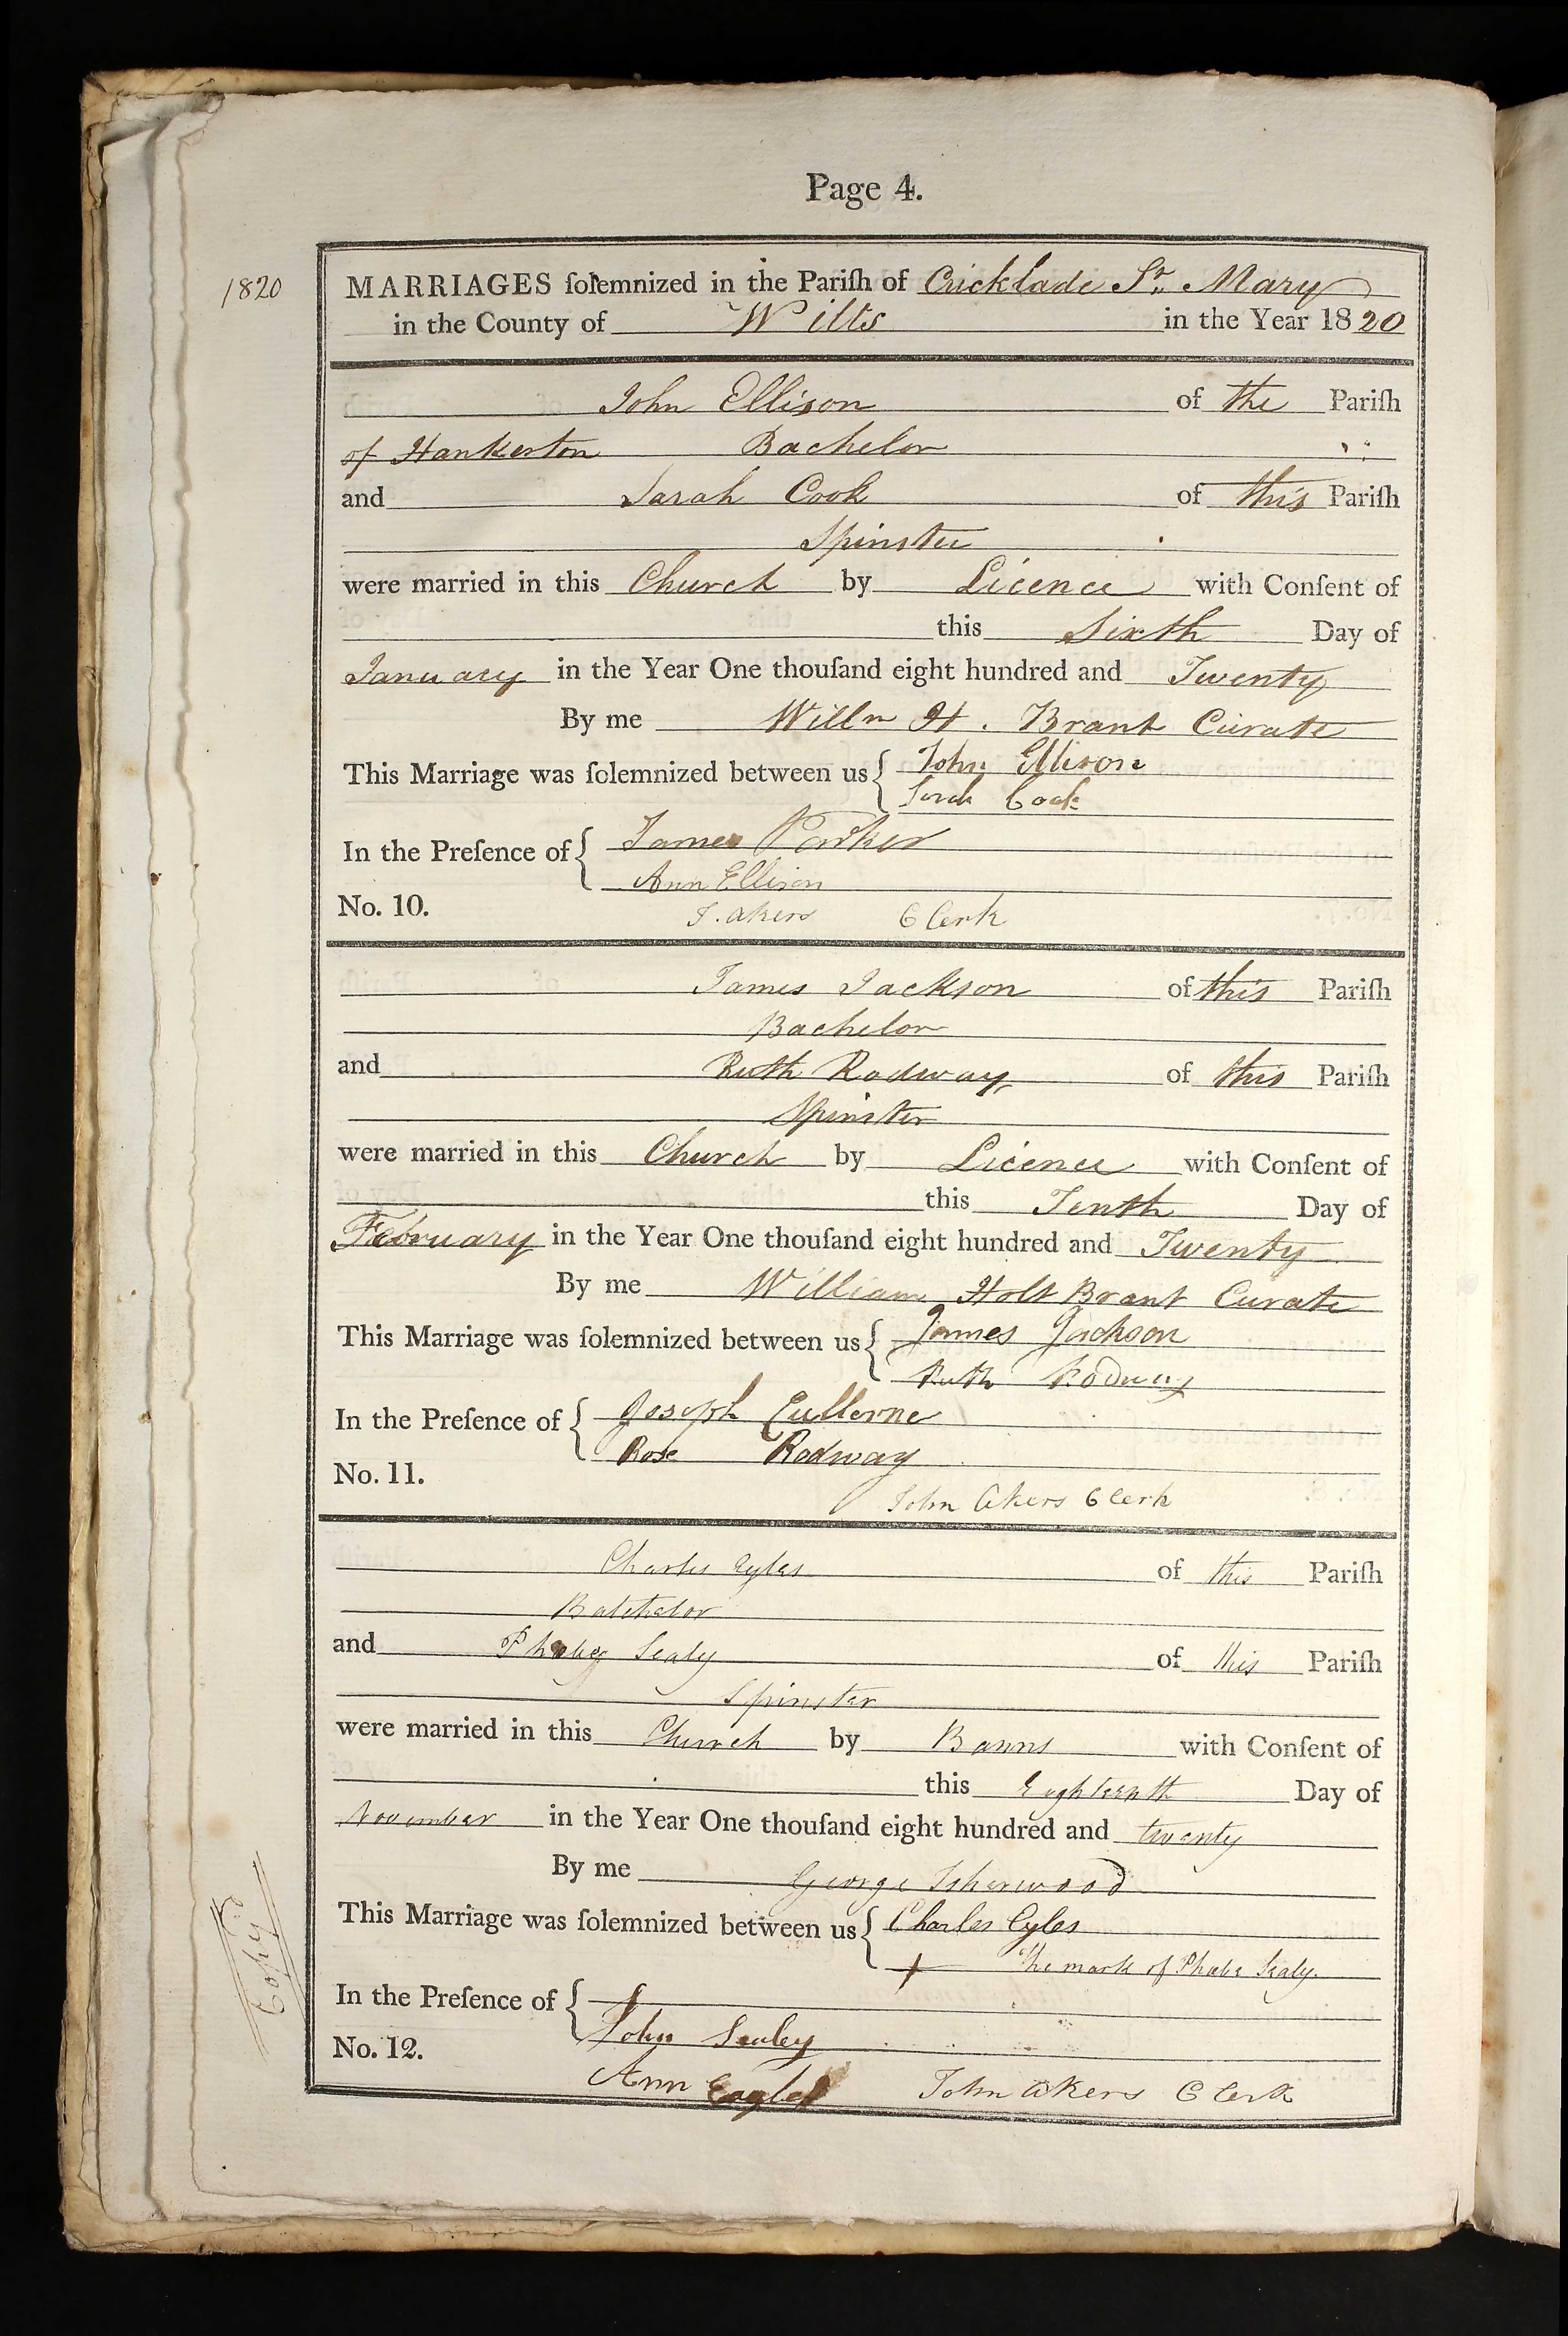 Page 4.
1820
MARRIAGES ſolemnized in the Pariſh of Cricklade St. Mary
in the County of Wilts in the Year 1820
John Ellison of the Pariſh
of Hankerton Bachelor
and Sarah Cook of this Pariſh
Spinster
were married in this Church by Licence with Conſent of
this Sixth Day of
January in the Year One thouſand eight hundred and Twenty
By me Willm H. Brant Curate
This Marriage was ſolemnized between us { John Ellison
Sarah Cook
In the Preſence of { James Parker
Ann Ellison
No. 10. J. Akers Clerk
James Jackson of this Pariſh
Bachelor
and Ruth Rodway of this Pariſh
Spinster
were married in this Church by Licence with Conſent of
this Tenth Day of
February in the Year One thouſand eight hundred and Twenty
By me William Holt Brant Curate
This Marriage was ſolemnized between us { James Jackson
Ruth Rodway
In the Preſence of { Joseph Cullerne
Rose Rodway
No. 11.
John Akers Clerk
Charles Eyles of this Pariſh
Batchelor
and Sealy of this Pariſh
Spinster
were married in this Church by Banns with Conſent of
this Eighteenth Day of
November in the Year One thouſand eight hundred and twenty
By me George Isherwood
This Marriage was ſolemnized between us { Charles Eyles
+ The mark of Phebe Sealy.
In the Preſence of {
John Sealey
No. 12.
Ann John Akers Clerk
Copy'd